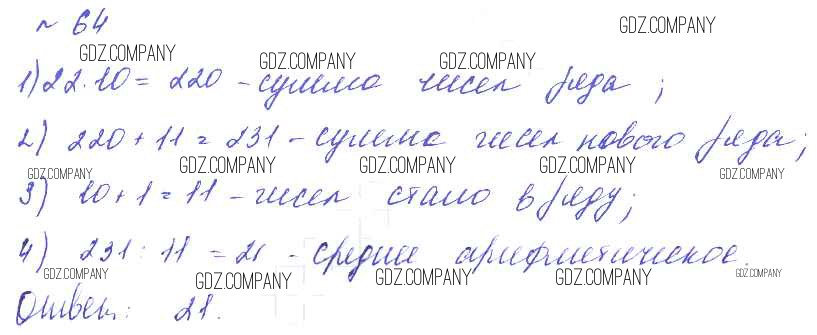 № 64
GDZ.COMPANY
GDZ.COMPANY GDZ.COMPANY GDZ.COMPANY
1) 22·10 = 220 - сумма чисел ряда ;
2) 220 + 11 = 231 - сумма чисел нового ряда;
GDZ.COMPANY GDZ.COMPANY GDZ.COMPANY GDZ.COMPANY GDZ.COMPANY
3) 10 + 1 = 11 - чисел стало в ряду;
4) 231 : 11 = 21 - среднее арифметическое.
GDZ.COMPANY GDZ.COMPANY GDZ.COMPANY GDZ.COMPANY GDZ.COMPANY
Ответ: 21.